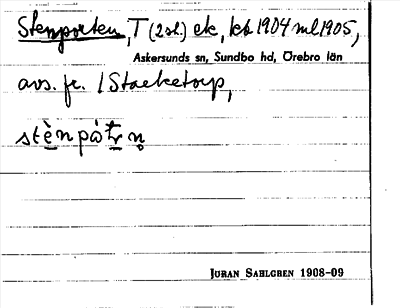 Stenporten, T (2 st.) ek, kb 1904 ml 1905,
Askersunds sn, Sundbo hd, Örebro län
avs. fr. 1 Stocketorp,
stènpåtrn
JURAN SAHLGREN 1908-09